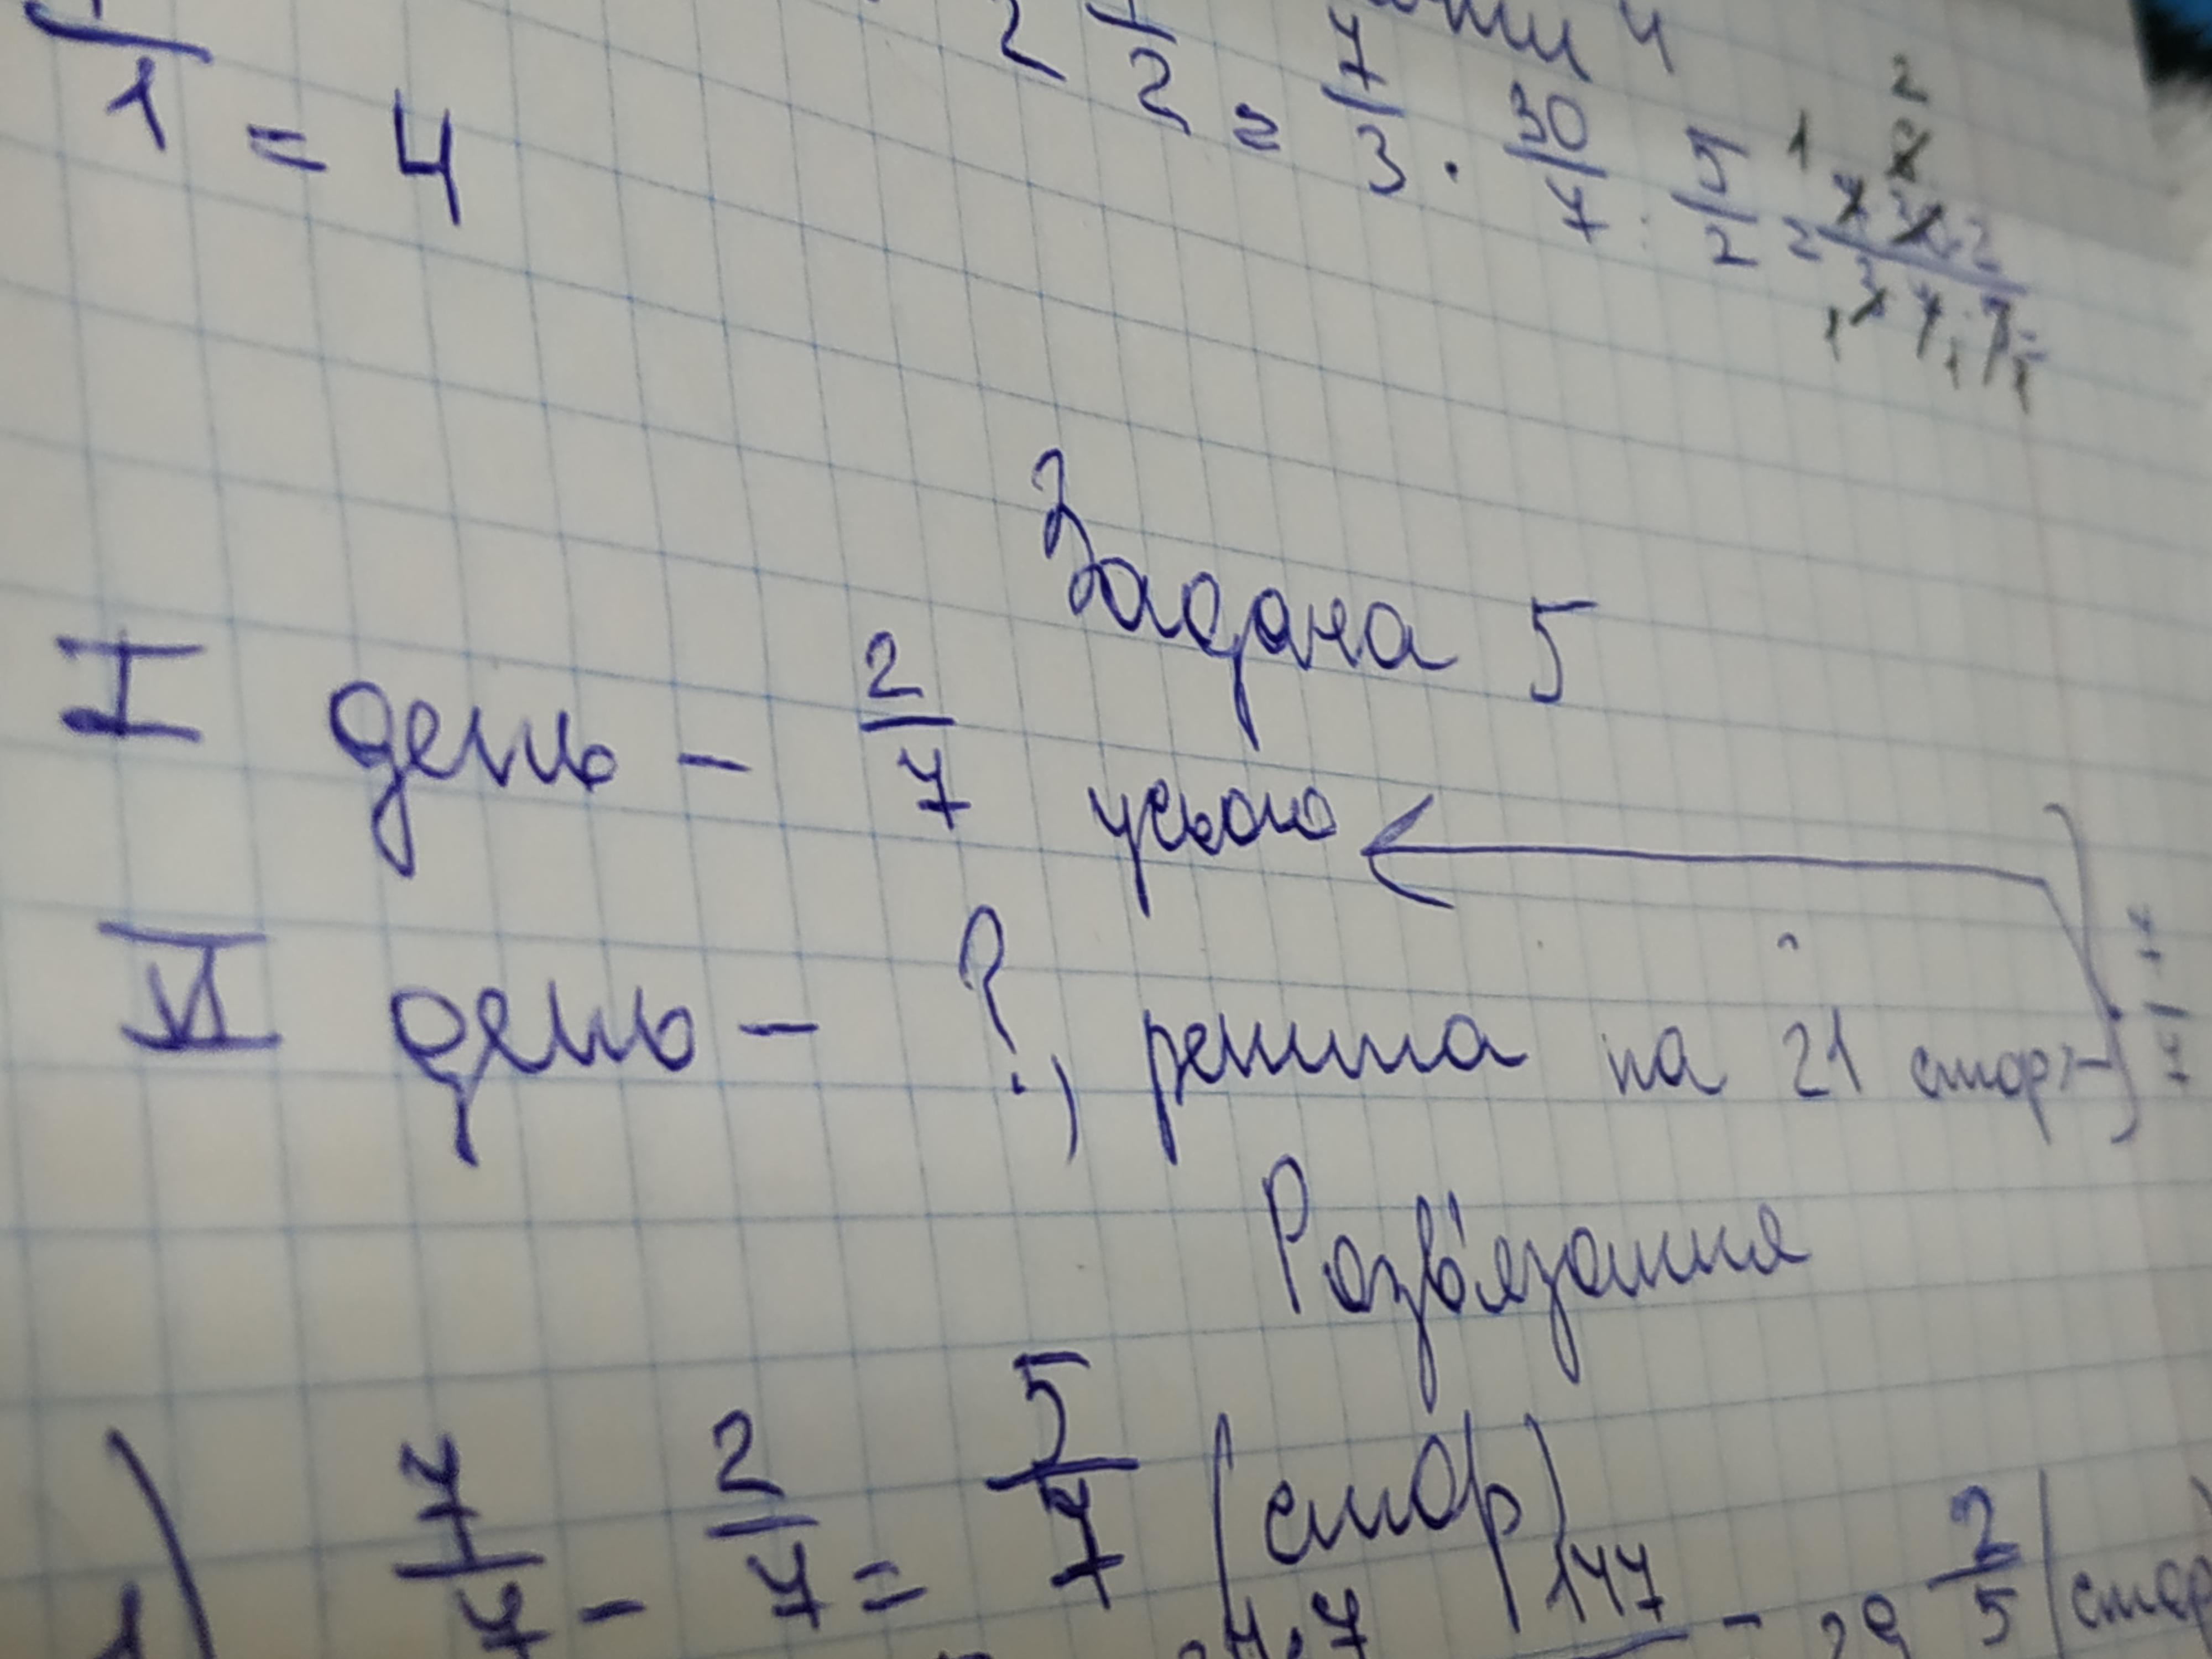 1 = 4
2 1/2 = 7/3 · 30/7 : 5/2 =
Задача 5
I день - 2/7 усього
VI день - ?, решта на 21 стор
7/7
Розв'язання
1) 7/7 - 2/7 = 5/7 (стор)
147 - 29 2/5 (стор)